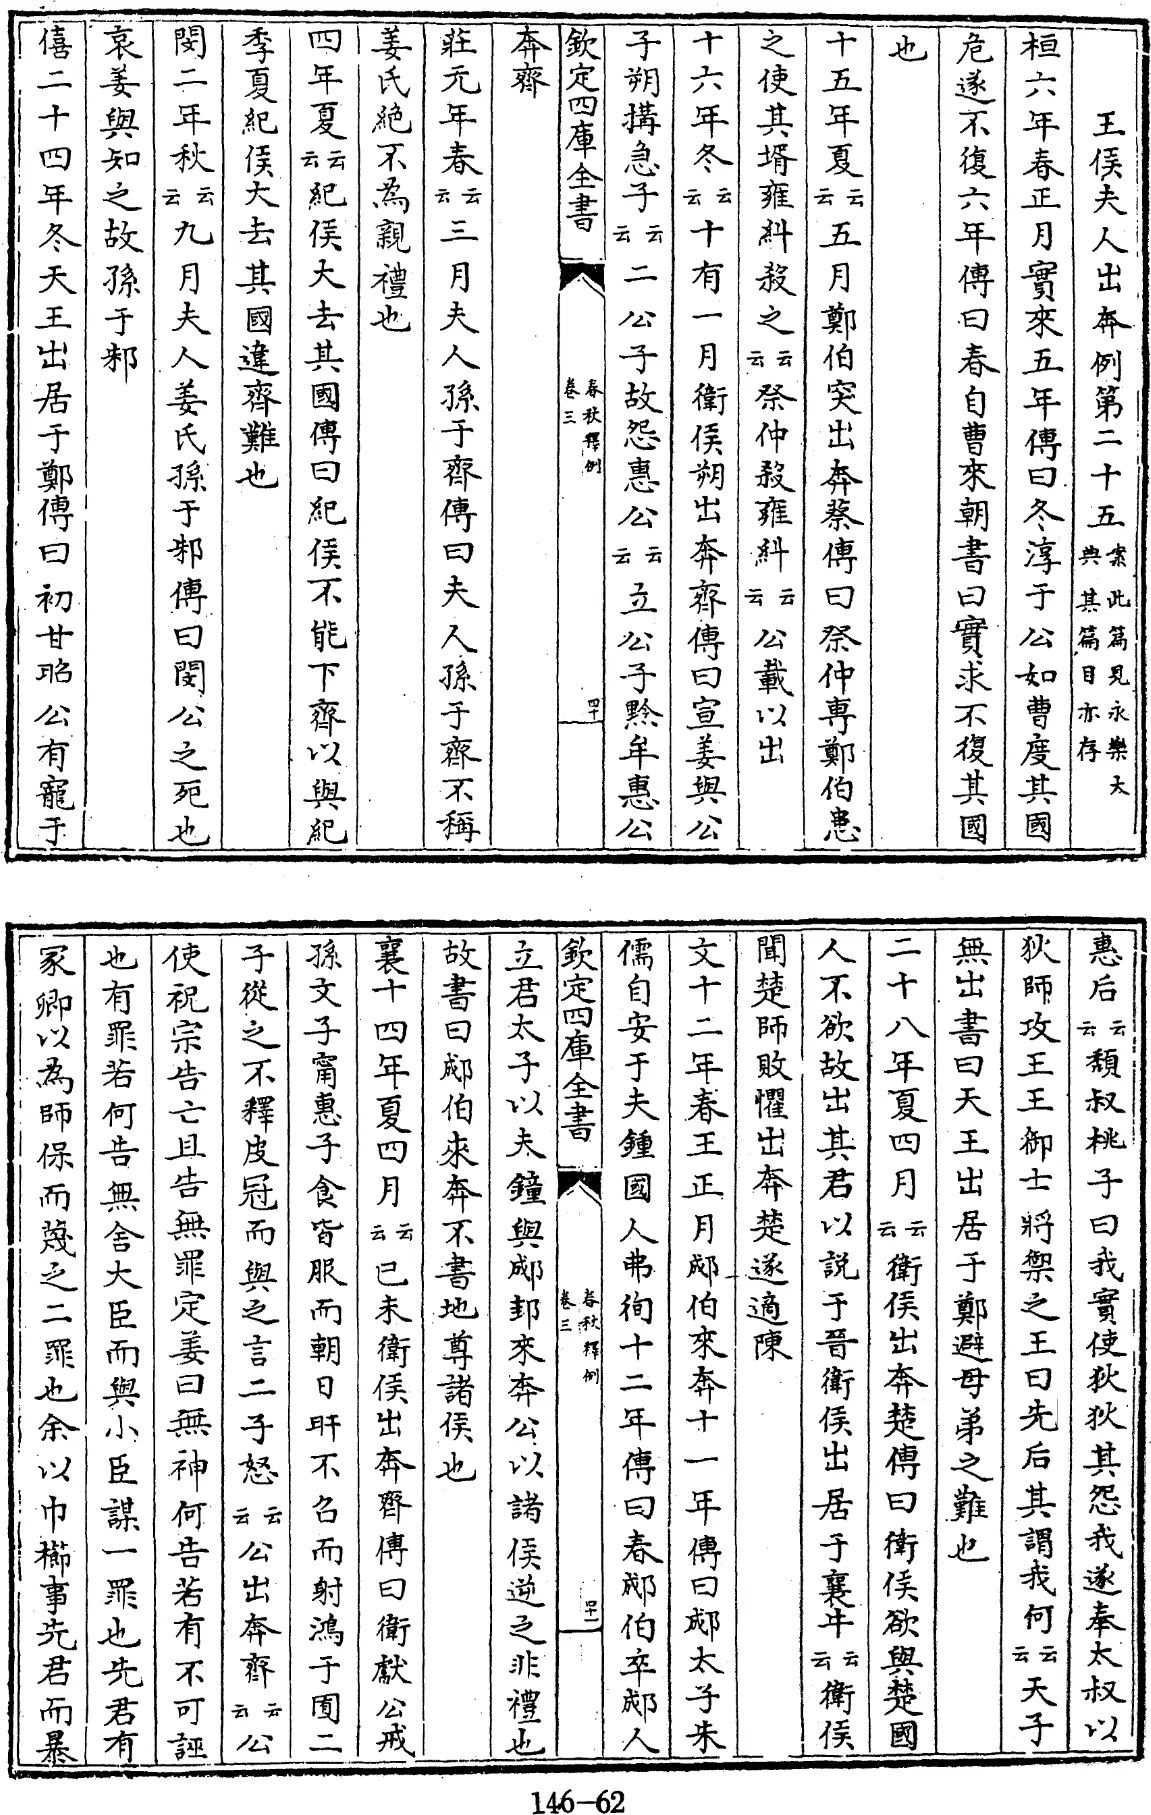 王侯夫人出奔例第二十五案此篇見永樂大典其篇目亦存
桓六年春正月實來五年傳曰冬淳于公如曹度其國
危遂不復六年傳曰春自曹來朝書曰實來不復其國
也
十五年夏云云五月鄭伯突出奔蔡傳曰祭仲專鄭伯患
之使其壻雍糾殺之云云祭仲殺雍糾云云公載以出
十六年冬云云十有一月衛侯朔出奔齊傳曰宣姜與公
子朔搆急子云云二公子故怨惠公云云立公子黔牟惠公
欽定四庫全書
春秋釋例
卷三
四十
奔齊
莊元年春云云三月夫人孫于齊傳曰夫人孫于齊不稱
姜氏絶不為親禮也
四年夏云云紀侯大去其國傳曰紀侯不能下齊以與紀
季夏紀侯大去其國違齊難也
閔二年秋云云九月夫人姜氏孫于邾傳曰閔公之死也
哀姜與知之故孫于邾
僖二十四年冬天王出居于鄭傳曰初甘昭公有寵于
惠后云云頽叔桃子曰我實使狄狄其怨我遂奉太叔以
狄師攻王王御士將禦之王曰先后其謂我何云云天子
無出書曰天王出居于鄭避母弟之難也
二十八年夏四月云云衛侯出奔楚傳曰衛侯欲與楚國
人不欲故出其君以説于晉衛侯出居于襄牛云云衛侯
聞楚師敗懼出奔楚遂適陳
文十二年春王正月郕伯來奔十一年傳曰郕太子朱
儒自安于夫鍾國人弗徇十二年傳曰春郕伯卒郕人
欽定四庫全書
春秋釋例
卷三
四十一
立君太子以夫鐘與郕邽來奔公以諸侯逆之非禮也
故書曰郕伯來奔不書地尊諸侯也
襄十四年夏四月云云已未衛侯出奔齊傳曰衛獻公戒
孫文子甯惠子食皆服而朝日旰不召而射鴻于囿二
子從之不釋皮冠而與之言二子怒云云公出奔齊云云公
使祝宗告亡且告無罪定姜曰無神何告若有不可誣
也有罪若何告無舍大臣而與小臣謀一罪也先君有
冢卿以為師保而蔑之二罪也余以巾櫛事先君而暴
146-62